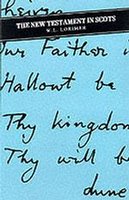 THE NEW TESTAMENT IN SCOTS
W. L. LORIMER
heiven
Our Faither i
Hallowt be
Thy kingdom
Thy will b
dune